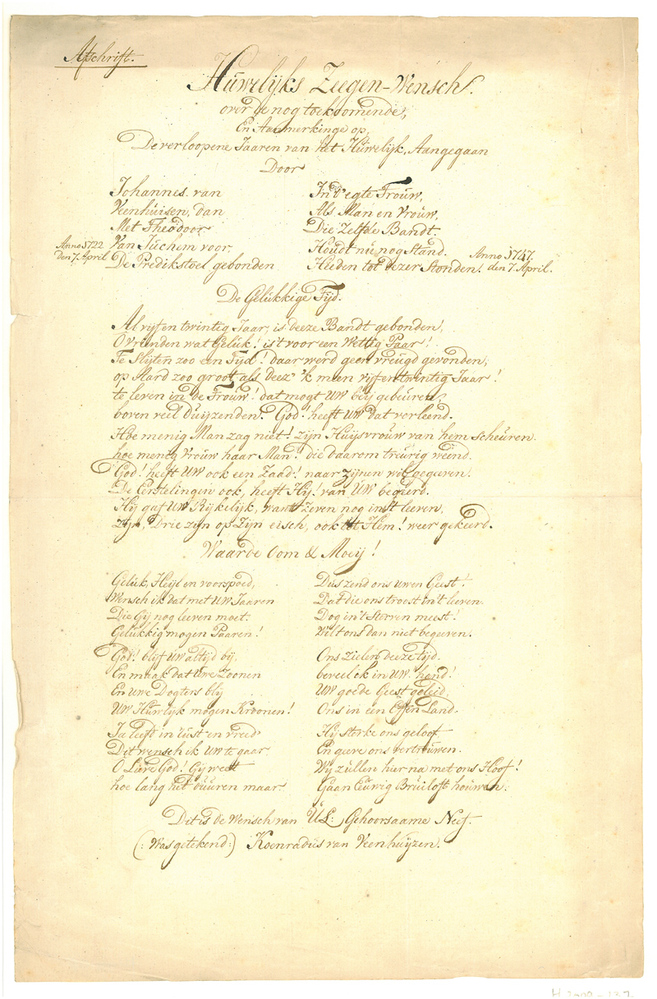 Afschrift.
Huwelijks Zeegen-Wensch.
over de nog toekoomende,
En Aanmerkinge op,
De verloopene Jaaren van het Huwelijk, Aangegaan
Door
Johannes van
Veenhuisen, dan
Met Theodoor
Anno 1722 Van Juchem voor
den 7. April De Predikstoel gebonden
In d'egte Trouw,
Als Man en Vrouw,
Die Zelfde Bandt.
Houdt nu nog Stand.
Heeden tot dezer Stonden.
Anno 1747.
den 7. April.
De Gelukkige Tijd.
Al vijf en twintig Jaar, is deeze Bandt gebonden,
O vrienden wat Geluk! is't voor een Wettig Paar!
Te Slijten zoo een Tijd! daar werd geen vreugd gevonden,
op Aard zoo groot als deez' 'k meen vijfentwintig Jaar!
te leven in de Trouw! dat mogt UW bey gebeuren,
boven veel Duijzenden. God! heeft UW dat verleend.
Hoe menig Man zag niet! zijn Huijsvrouw van hem scheuren.
hoe menig Vrouw haar Man! die daarom treurig weend.
God! heeft UW ook een Zaad! naar zijnen wil gegeven.
De Eerstelingen ook, heeft Hij! van UW begeerd.
Hij gaf UW Rijkelijk, want zeven nog in't leeven,
zijn, Drie zijn op Zijn eisch, ook tot Hem! weer gekeerd.
Waarde Oom & Moeij!
Geluk, Heijl en voorspoed,
Wensch ik dat met UW Jaaren
Die Gij nog leeven moet.
Gelukkig mogen Paaren!
God! blijf UW altijd bij.
En maak dat Uwe Zoonen
En Uwe Dogters blij
UW Huwlijk mogen Kroonen!
Ja leeft in lust en vreed
Dit wensch ik UW te gaar.
O Lieve God! Gij weet
hoe lang het duuren maar.
Dus zend ons uwen Geest!
Dat die ons troost in't leeven.
Dog in't Sterven meest!
Wilt ons dan niet begeeven.
Ons zielen deeze tijd.
beveel ok in UW hand!
UW goede Geest geleid,
Ons in een Effen Land.
Hij sterke ons geloof
En geeve ons vertrouwen.
Wij zullen hier na met ons Hoof!
Gaan Eeuwig Bruiloft houwen.
Dit is de Wensch van UE: Gehoorsaame Neef.
(: Was getekend:) Koenradus van Veenhuijzen.